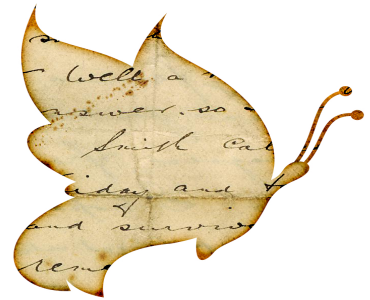 Well, a
answer. so
Smith Cal
iday and t
and surviv
reme